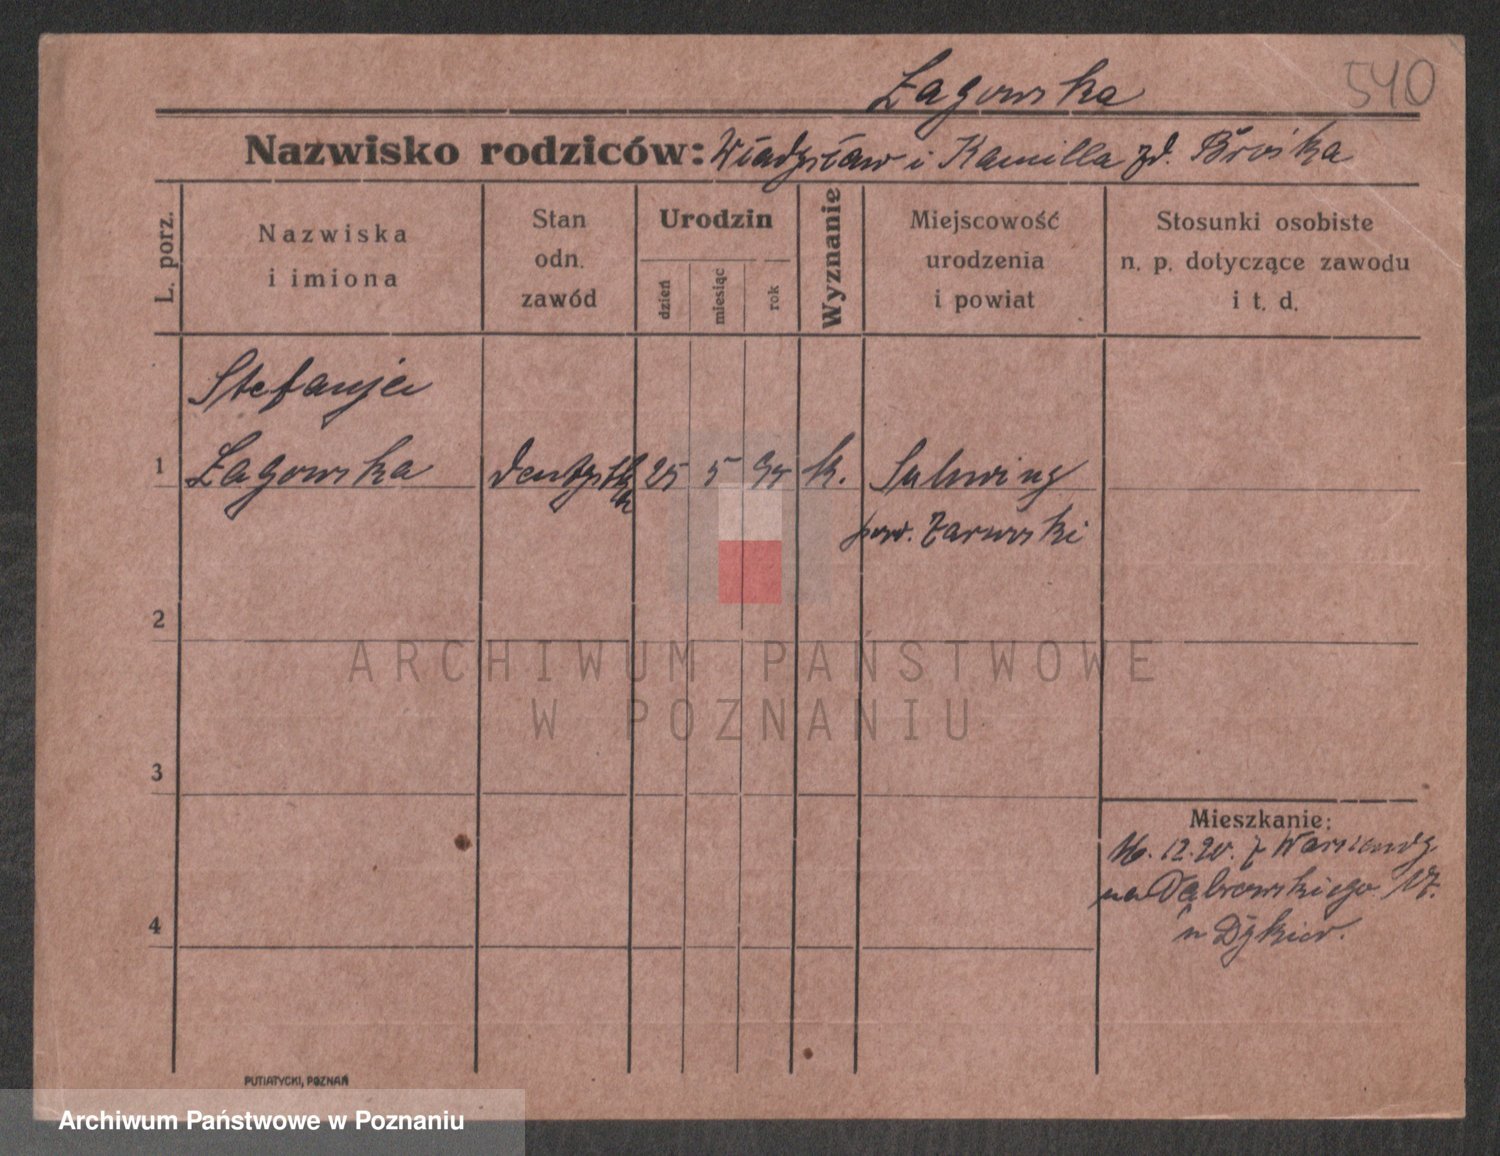 Łagowska
540
Nazwisko rodziców: Władysław i Kamilla zd.
L. porz.
Nazwiska
i imiona
Stan
odn.
zawód
Urodzin
dzień
miesiąc
rok
Wyznanie
Miejscowość
urodzenia
i powiat
Stosunki osobiste
n. p. dotyczące zawodu
i t. d.
Stefanja
1 Łagowska dentystka 25 5 95 k.
pow.
2
ARCHIWUM PAŃSTWOWE
W POZNANIU
3
Mieszkanie:
16.12.20. z Warszawy
na Dąbrowskiego 17.
4
PUTIATYCKI, POZNAŃ
Archiwum Państwowe w Poznaniu